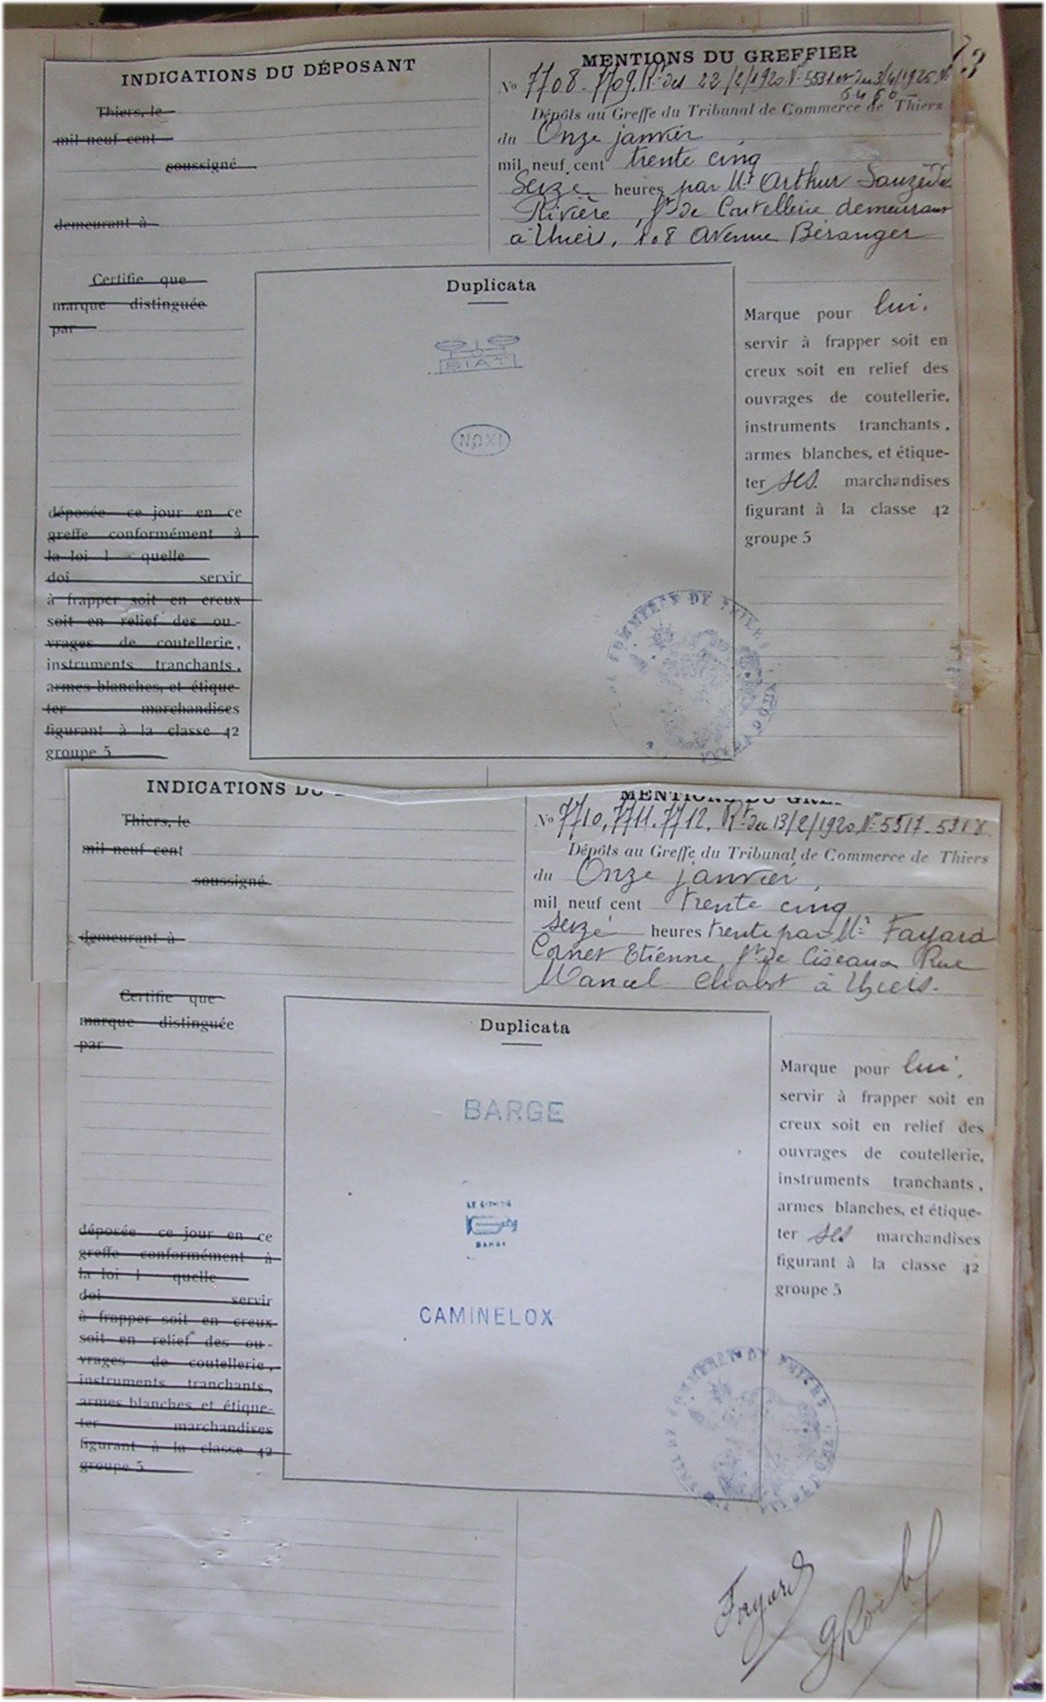 INDICATIONS DU DÉPOSANT
Thiers, le
mil neuf cent
soussigné
demeurant à
MENTIONS DU GREFFIER
No 7708 - 7709. Rt du 22/2/1920 N° 5531 et du 3/4/1925 N°
6460
Dépôts au Greffe du Tribunal de Commerce de Thiers
du Onze janvier
mil neuf cent trente cinq
Seize heures par Mr Arthur Sauzède
Rivière, ft de Coutellerie demeurant
à Thiers, 108 Avenue Béranger
Certifie que
marque distinguée
par
déposée ce jour en ce
greffe conformément à
la loi l quelle
doi servir
à frapper soit en creux
soit en relief des ou-
vrages de coutellerie,
instruments tranchants,
armes blanches, et étique-
ter marchandises
figurant à la classe 42
groupe 5
Duplicata
SIAT
NOXI
Marque pour lui.
servir à frapper soit en
creux soit en relief des
ouvrages de coutellerie,
instruments tranchants,
armes blanches, et étique-
ter ses marchandises
figurant à la classe 42
groupe 5
COMMERCE DE THIERS
INDICATIONS DU
Thiers, le
mil neuf cent
soussigné
demeurant à
MENTIONS DU GREF
No 7710, 7711. 7712. Rt du 13/2/1920 N° 5317 - 5318
Dépôts au Greffe du Tribunal de Commerce de Thiers
du Onze janvier
mil neuf cent trente cinq
Seize heures trente par Mr Fayard
Cornet Etienne, ft de Ciseaux Rue
Marcel Chabot à Thiers.
Certifie que
marque distinguée
par
déposée ce jour en ce
greffe conformément à
la loi l quelle
doi servir
à frapper soit en creux
soit en relief des ou-
vrages de coutellerie,
instruments tranchants,
armes blanches, et étique-
ter marchandises
figurant à la classe 42
groupe 5
Duplicata
BARGE
LE
BARGE
CAMINELOX
Marque pour lui.
servir à frapper soit en
creux soit en relief des
ouvrages de coutellerie,
instruments tranchants,
armes blanches, et étique-
ter ses marchandises
figurant à la classe 42
groupe 5
COMMERCE DE THIERS
Fayard